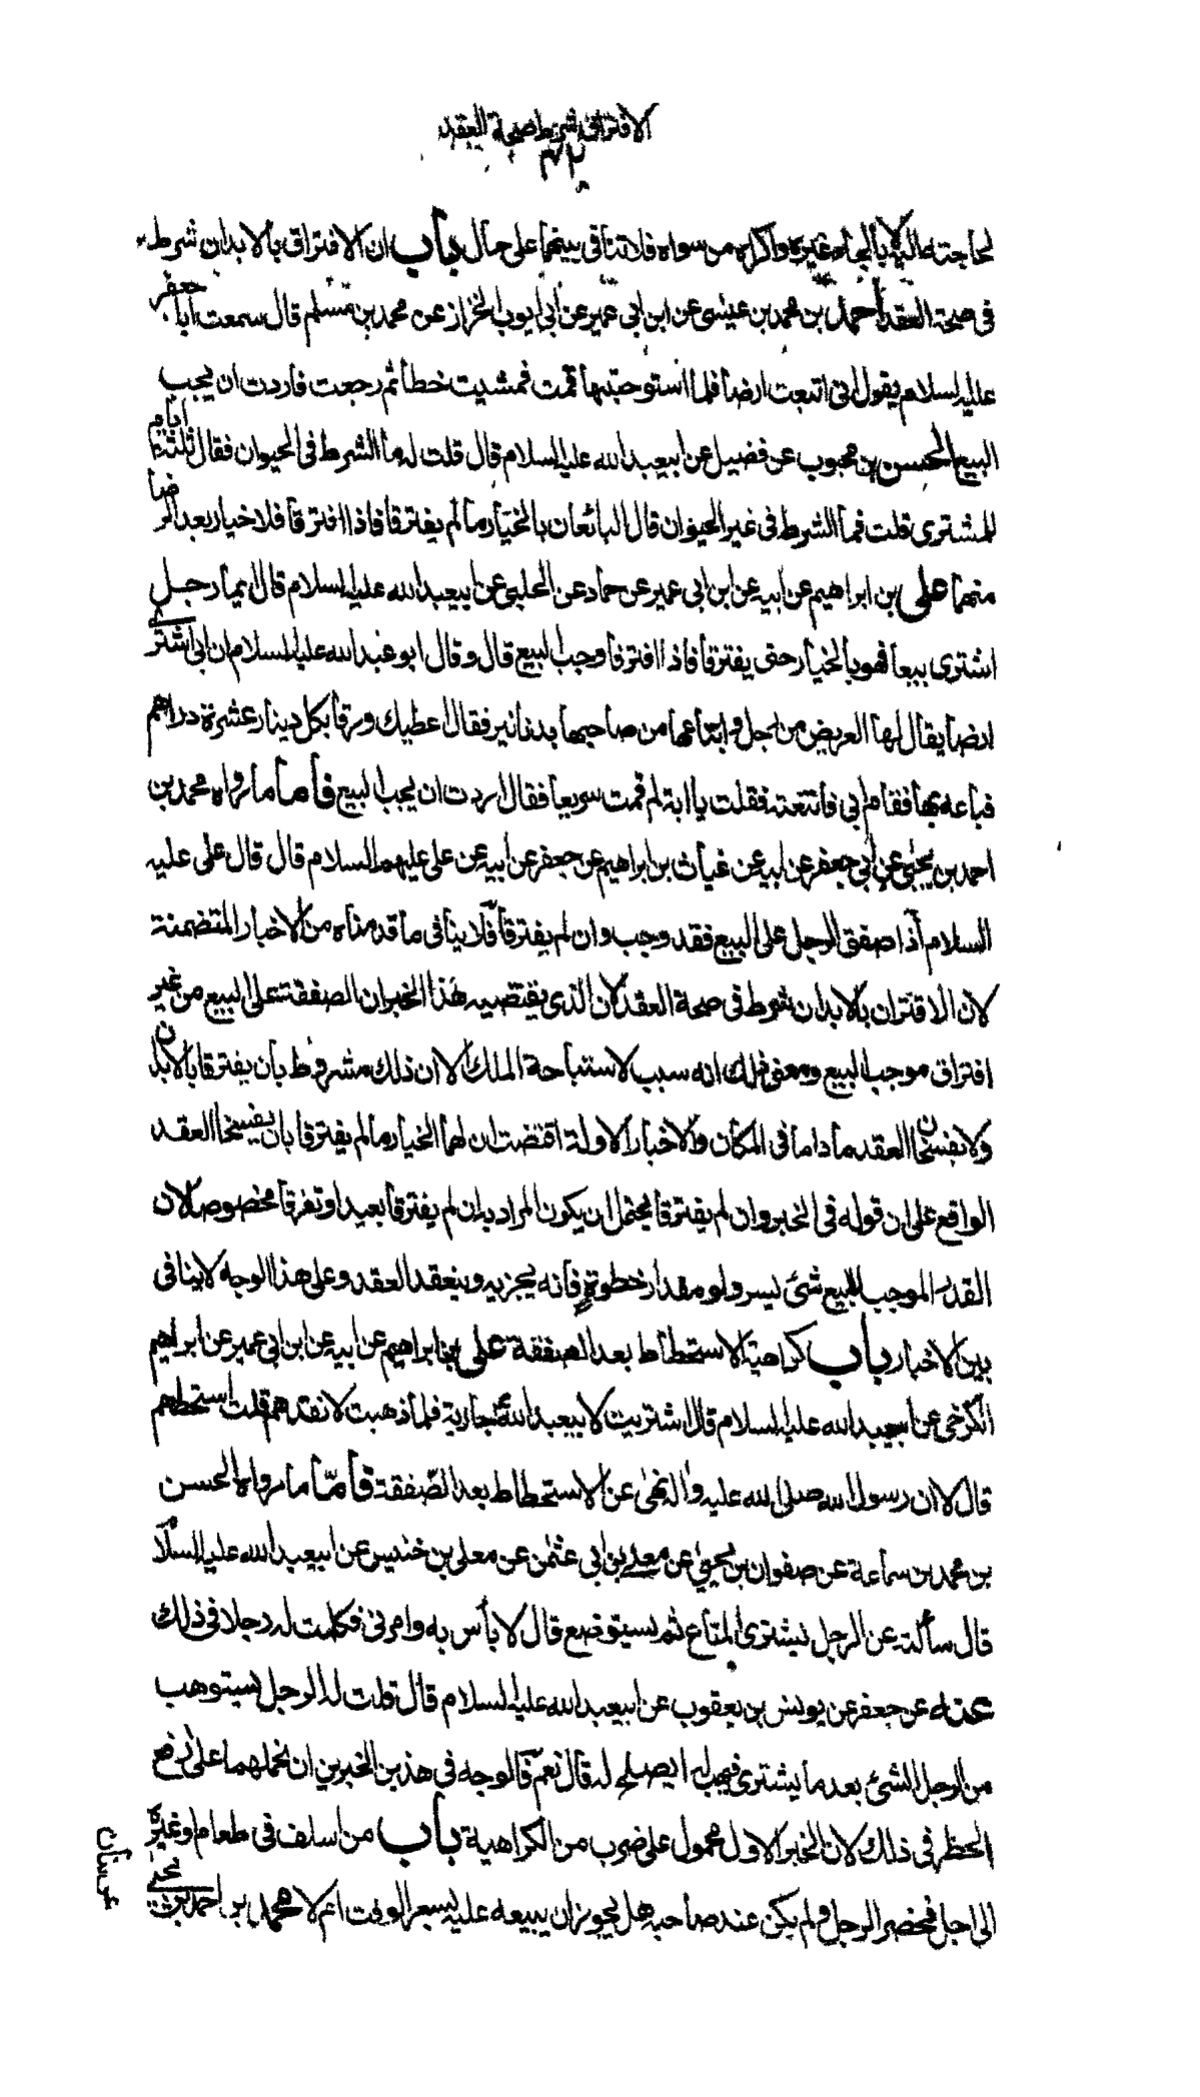 الافتراق شرط صحة العقد
لحاجته اليه لا بالجاء غيره واكراه من سواه فلا تنافى بينهما على حال باب ان الافتراق بالابدان شرط
فى صحة العقد احمد بن محمد بن عيسى عن ابن ابى عمير عن ابى ايوب الخزاز عن محمد بن مسلم قال سمعت ابا جعفر
عليه السلام يقول انى ابتعت ارضا فلما استوجبتها قمت فمشيت خطا ثم رجعت فاردت ان يجب
البيع الحسن بن محبوب عن فضيل عن ابيعبد الله عليه السلام قال قلت له ما الشرط فى الحيوان فقال ثلثة ايام
للمشترى قلت فما الشرط فى غير الحيوان قال البائعان بالخيار ما لم يفترقا فاذا افترقا فلا خيار بعد الرضا
منهما على بن ابراهيم عن ابيه عن ابن ابى عمير عن حماد عن الحلبى عن ابيعبد الله عليه السلام قال ايما رجل
اشترى بيعا فهو بالخيار حتى يفترقا فاذا افترقا وجب البيع قال وقال ابو عبد الله عليه السلام ان ابى اشترى
ارضا يقال لها العريض من رجل وابتاعها من صاحبها بدنانير فقال اعطيك ورقا بكل دينار عشرة دراهم
فباعه بها فقام ابى فاتبعته فقلت يا ابة لم قمت سريعا فقال اردت ان يجب البيع فاما ما رواه محمد بن
احمد بن يحيى عن ابى جعفر عن ابيه عن غياث بن ابراهيم عن جعفر عن ابيه عن على عليهم السلام قال قال على عليه
السلام اذا صفق الرجل على البيع فقد وجب وان لم يفترقا فلا ينافى ما قدمناه من الاخبار المتضمنة
لان الافتراق بالابدان شرط فى صحة العقد لان الذى يقتضيه هذا الخبر ان الصفقة على البيع من غير
افتراق موجب البيع ومعنى ذلك انه سبب لاستباحة الملك الا ان ذلك مشروط بان يفترقا بالابدان
ولا يفسخان العقد ما داما فى المكان والاخبار الاولة اقتضت ان لهما الخيار ما لم يفترقا بان يفسخا العقد
الواقع على ان قوله فى الخبر وان لم يفترقا يحتمل ان يكون المراد به ان لم يفترقا بعيدا وتفرقا مخصوصا لان
القدر الموجب للبيع شئ يسير ولو مقدار خطوة فانه يجزيه وينعقد العقد وعلى هذا الوجه لا ينافى
بين الاخبار باب كراهية الاستحطاط بعد الصفقة على بن ابراهيم عن ابيه عن ابن ابى عمير عن ابراهيم
الكرخى عن ابيعبد الله عليه السلام قال اشتريت لابيعبد الله جارية فلما ذهبت لانقدهم قلت استحطهم
قال لا ان رسول الله صلى الله عليه واله نهى عن الاستحطاط بعد الصفقة فاما ما رواه الحسن
بن محمد بن سماعة عن صفوان بن يحيى عن معلى بن ابى عثمن عن معلى بن خنيس عن ابيعبد الله عليه السلام
قال سألته عن الرجل يشترى المتاع ثم يستوضع قال لا بأس به وامرنى فكلمت له رجلا فى ذلك
عنه عن جعفر عن يونس بن يعقوب عن ابيعبد الله عليه السلام قال قلت له الرجل يستوهب
من الرجل الشئ بعد ما يشترى فيهب له ايصلح له قال نعم فالوجه فى هذين الخبرين ان نحملهما على رفع
الحظر فى ذلك لان الخبر الاول محمول على ضرب من الكراهية باب من اسلف فى طعام او غيره
الى اجل فحضر الرجل ولم يكن عند صاحبه هل يجوز ان يبيعه عليه بسعر الوقت ام لا محمد بن احمد بن يحيى